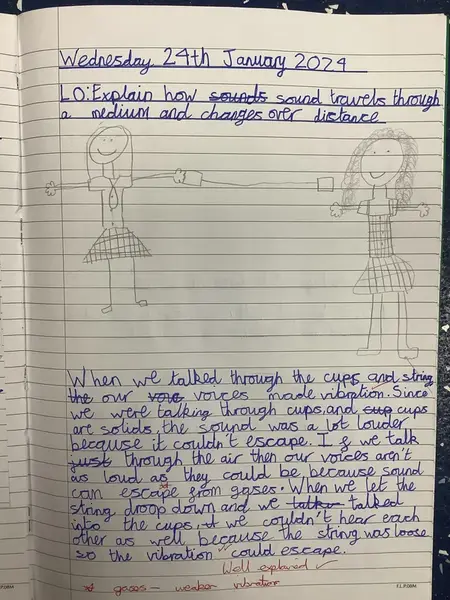 Wednesday 24th January 2024
LO: Explain how sounds sound travels through
a medium and changes over distance
When we talked through the cups and string
the our voie voices made vibration. Since
we were talking through cups, and cup cups
are solids, the sound was a lot louder
because it couldn't escape. If we talk
just through the air then our voices aren't
as loud as they could be because sound
can escape from gases. When we let the
string droop down and we talke talked
into the cups, we couldn't hear each
other as well because the string was loose
so the vibration could escape.
Well explained ✓
* gases – weaker vibration